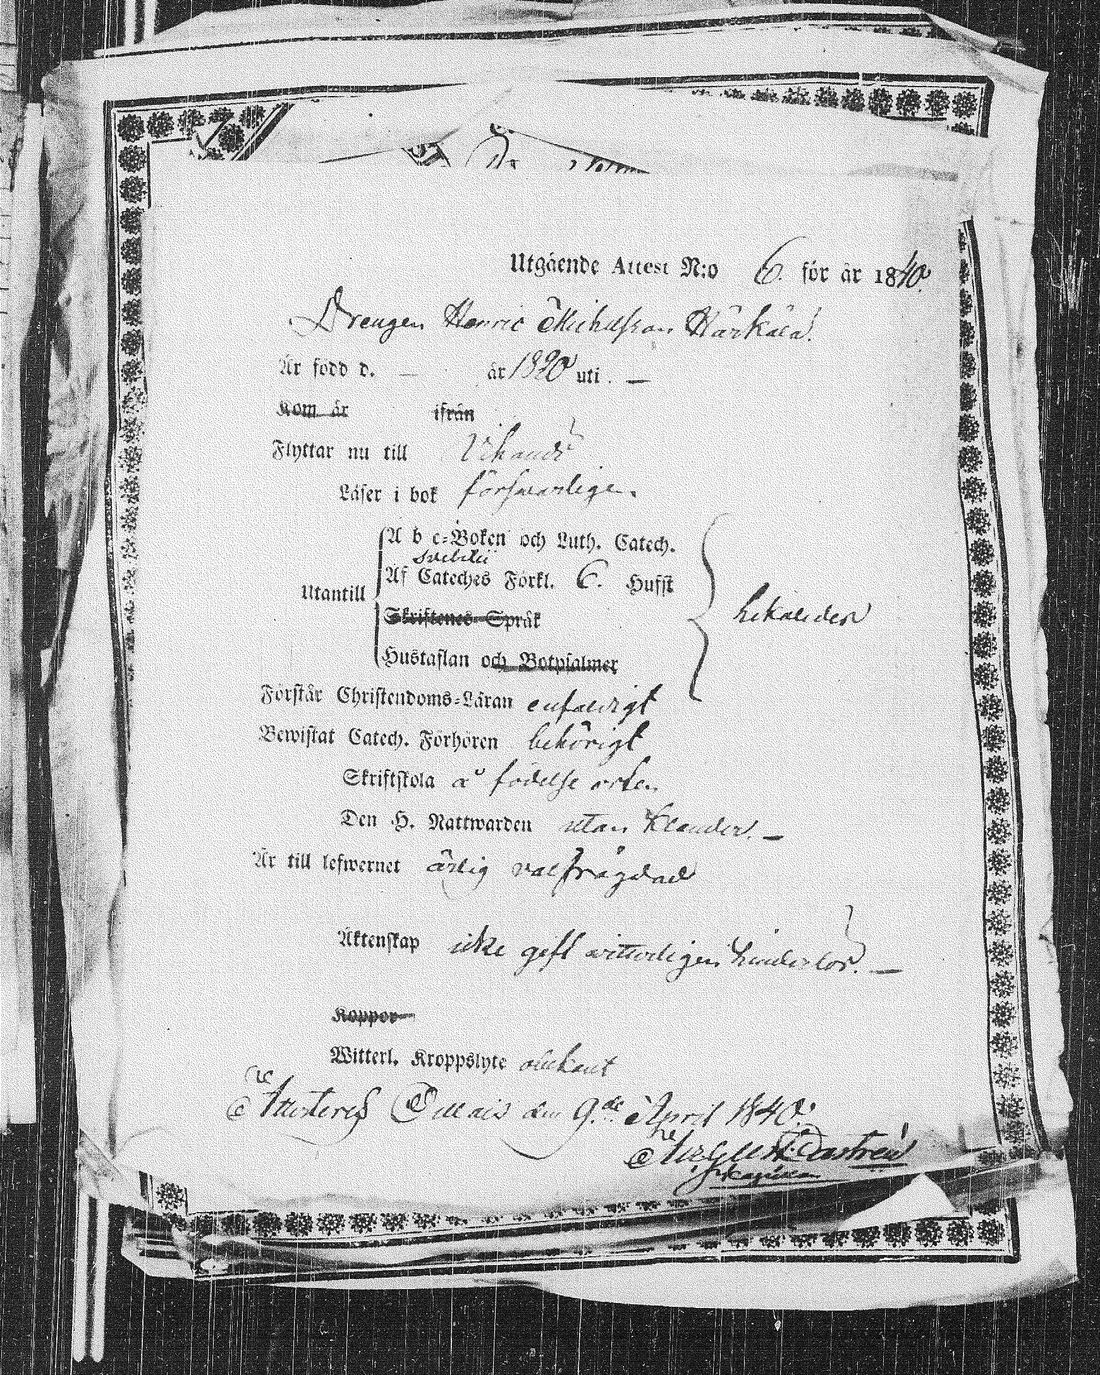 Utgående Attest N:o 6. för år 1840.
Drengen Henric Michelsson Härkälä.
Är född d. — år 1820 uti. —
Kom år ifrån
Flyttar nu till
Läser i bok försvarligen.
A b c-Boken och Luth. Catech.
Svebilii
Utantill Af Cateches Förkl. 6. Hufst
Skriftenes Språk
Hustaflan och Botpsalmer
Förstår Christendoms-Läran enfaldigt
Bewistat Catech. Förhören behörigt
Skriftskola å födelse orten
Den H. Nattwarden utan klander. —
Är till lefwernet ärlig välfrägdad
Äktenskap icke gift witterligen hinderlös. —
Koppor
Witterl. Kroppslyte obekant
Attesteras den 9.de April 1840.